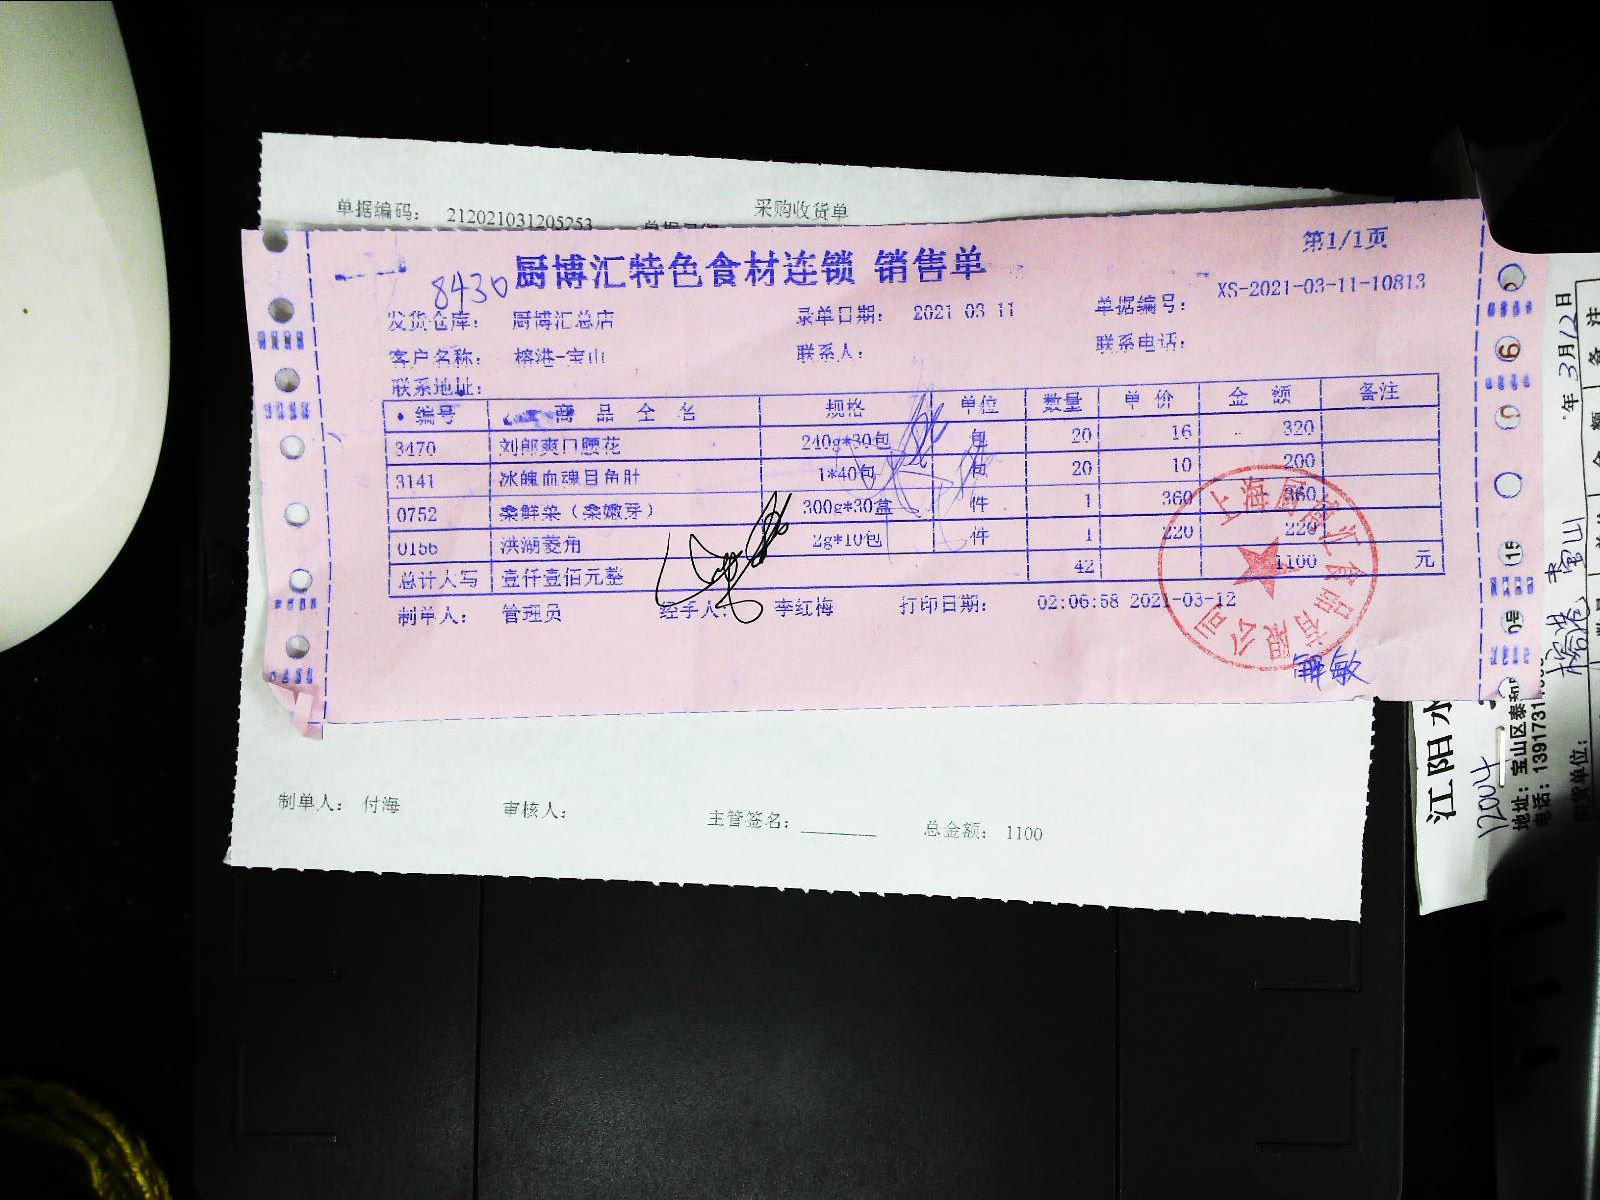 单据编码： 212021031205253
采购收货单
厨博汇特色食材连锁 销售单
第1/1页
8430
发货仓库： 厨博汇总店 录单日期： 2021 03 11 单据编号： XS-2021-03-11-10813
客户名称： 榕港-宝山 联系人： 联系电话：
联系地址：
编号 商品全名 规格 单位 数量 单价 金额 备注
3470 刘郎爽口腰花 240g*30包 包 20 16 320
3141 冰魄血魂目角肚 1*40包 包 20 10 200
0752 桑鲜菜（桑嫩芽） 300g*30盒 件 1 360 360
0156 洪湖菱角 2g*10包 件 1 220 220
总计大写 壹仟壹佰元整 42 1100 元
制单人： 管理员 经手人： 李红梅 打印日期： 02:06:58 2021-03-12
解敏
制单人： 付海 审核人： 主管签名： 总金额： 1100
年 3月12日
备注
榕港 宝山
江阳水
12004
地址：宝山区泰和
电话：1391731